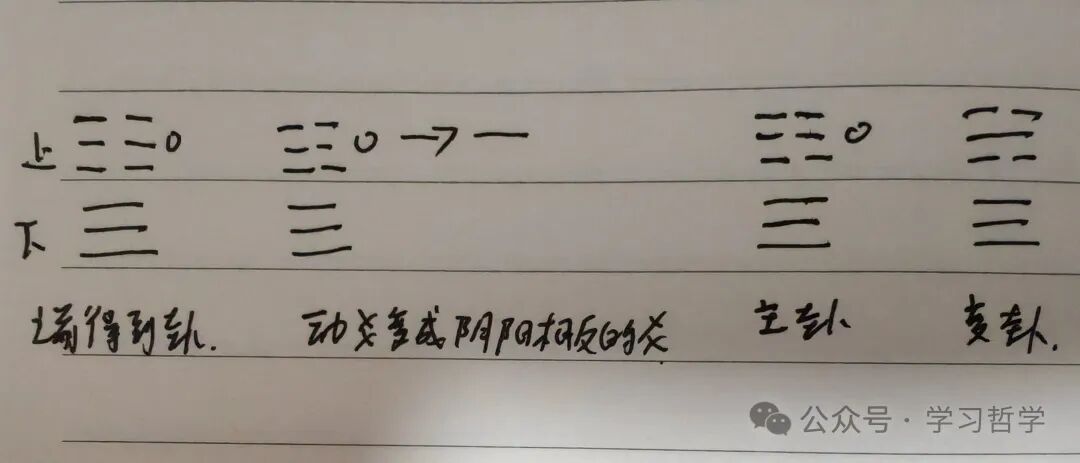 上
下
得到卦.
动爻变成阴阳相反的爻
主卦
变卦.
公众号·学习哲学